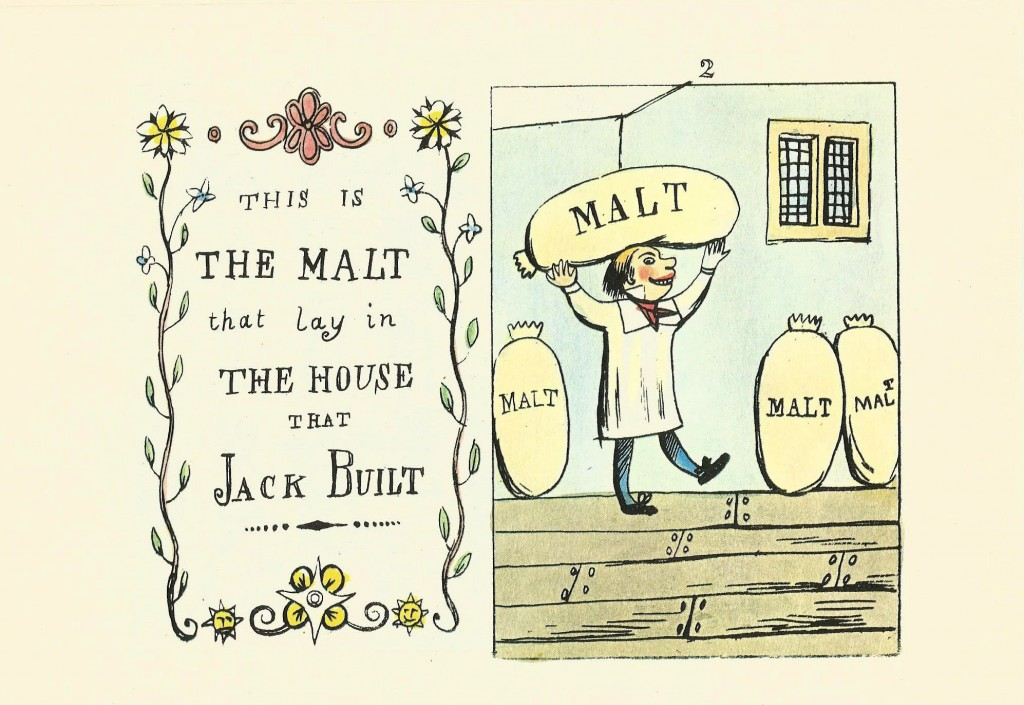 THIS IS
THE MALT
that lay in
THE HOUSE
THAT
JACK BUILT
2
MALT
MALT
MALT
MALT